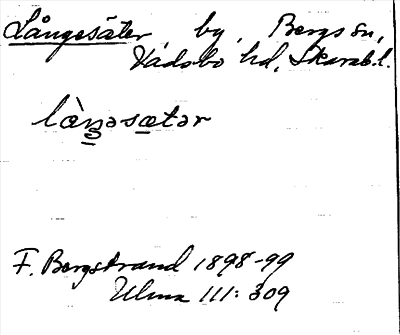 Långesäter, by, Bergs sn,
Vadsbo hd, Skarab. l.
lὰŋəsætər
F. Bergstrand 1898-99
Ulma 111: 309